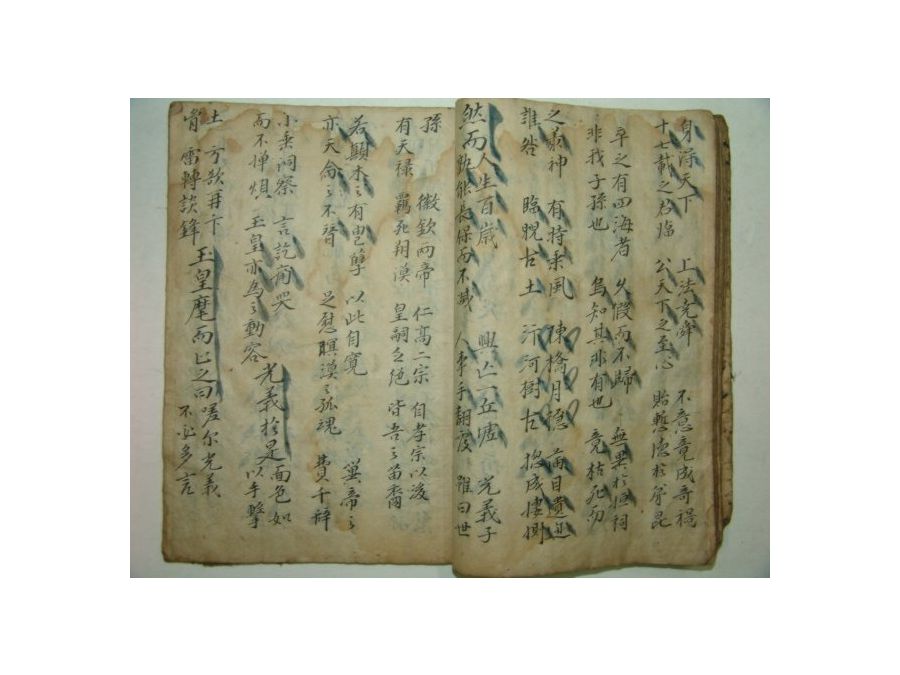 身済天下 上法堯舜 不意竟成奇禍
十七載之君臨 公天下之至心 貽慙德於後昆
卒之有四海者 久假而不歸 無異於
非我子孫也 烏知其非有也 竟枯死而
之義神 有時乘風 陳橋月 目遺
誰咎 臨睨古土 汴河樹古 揔成悽惻
然而人生百歲 興亡一丘墟 光義子
孰能長保而不滅 人事手翻 雖曰世
孫 徽欽兩帝 仁高二宗 自孝宗以後
有天祿 羈死朔漠 皇嗣之絶 皆吾之苗裔
若顚木之有甹孽 以此自寬 冀帝之
亦天命之不僭 足慰瞑漠之孤魂 費千辭
小垂洞察 言訖痛哭 光義於是面色如
而不憚煩 玉皇亦爲之動容 以手擊
土 方欲再卞 玉皇麾而止之曰 嗟尔光義
胃 雷轉談鋒 不必多言